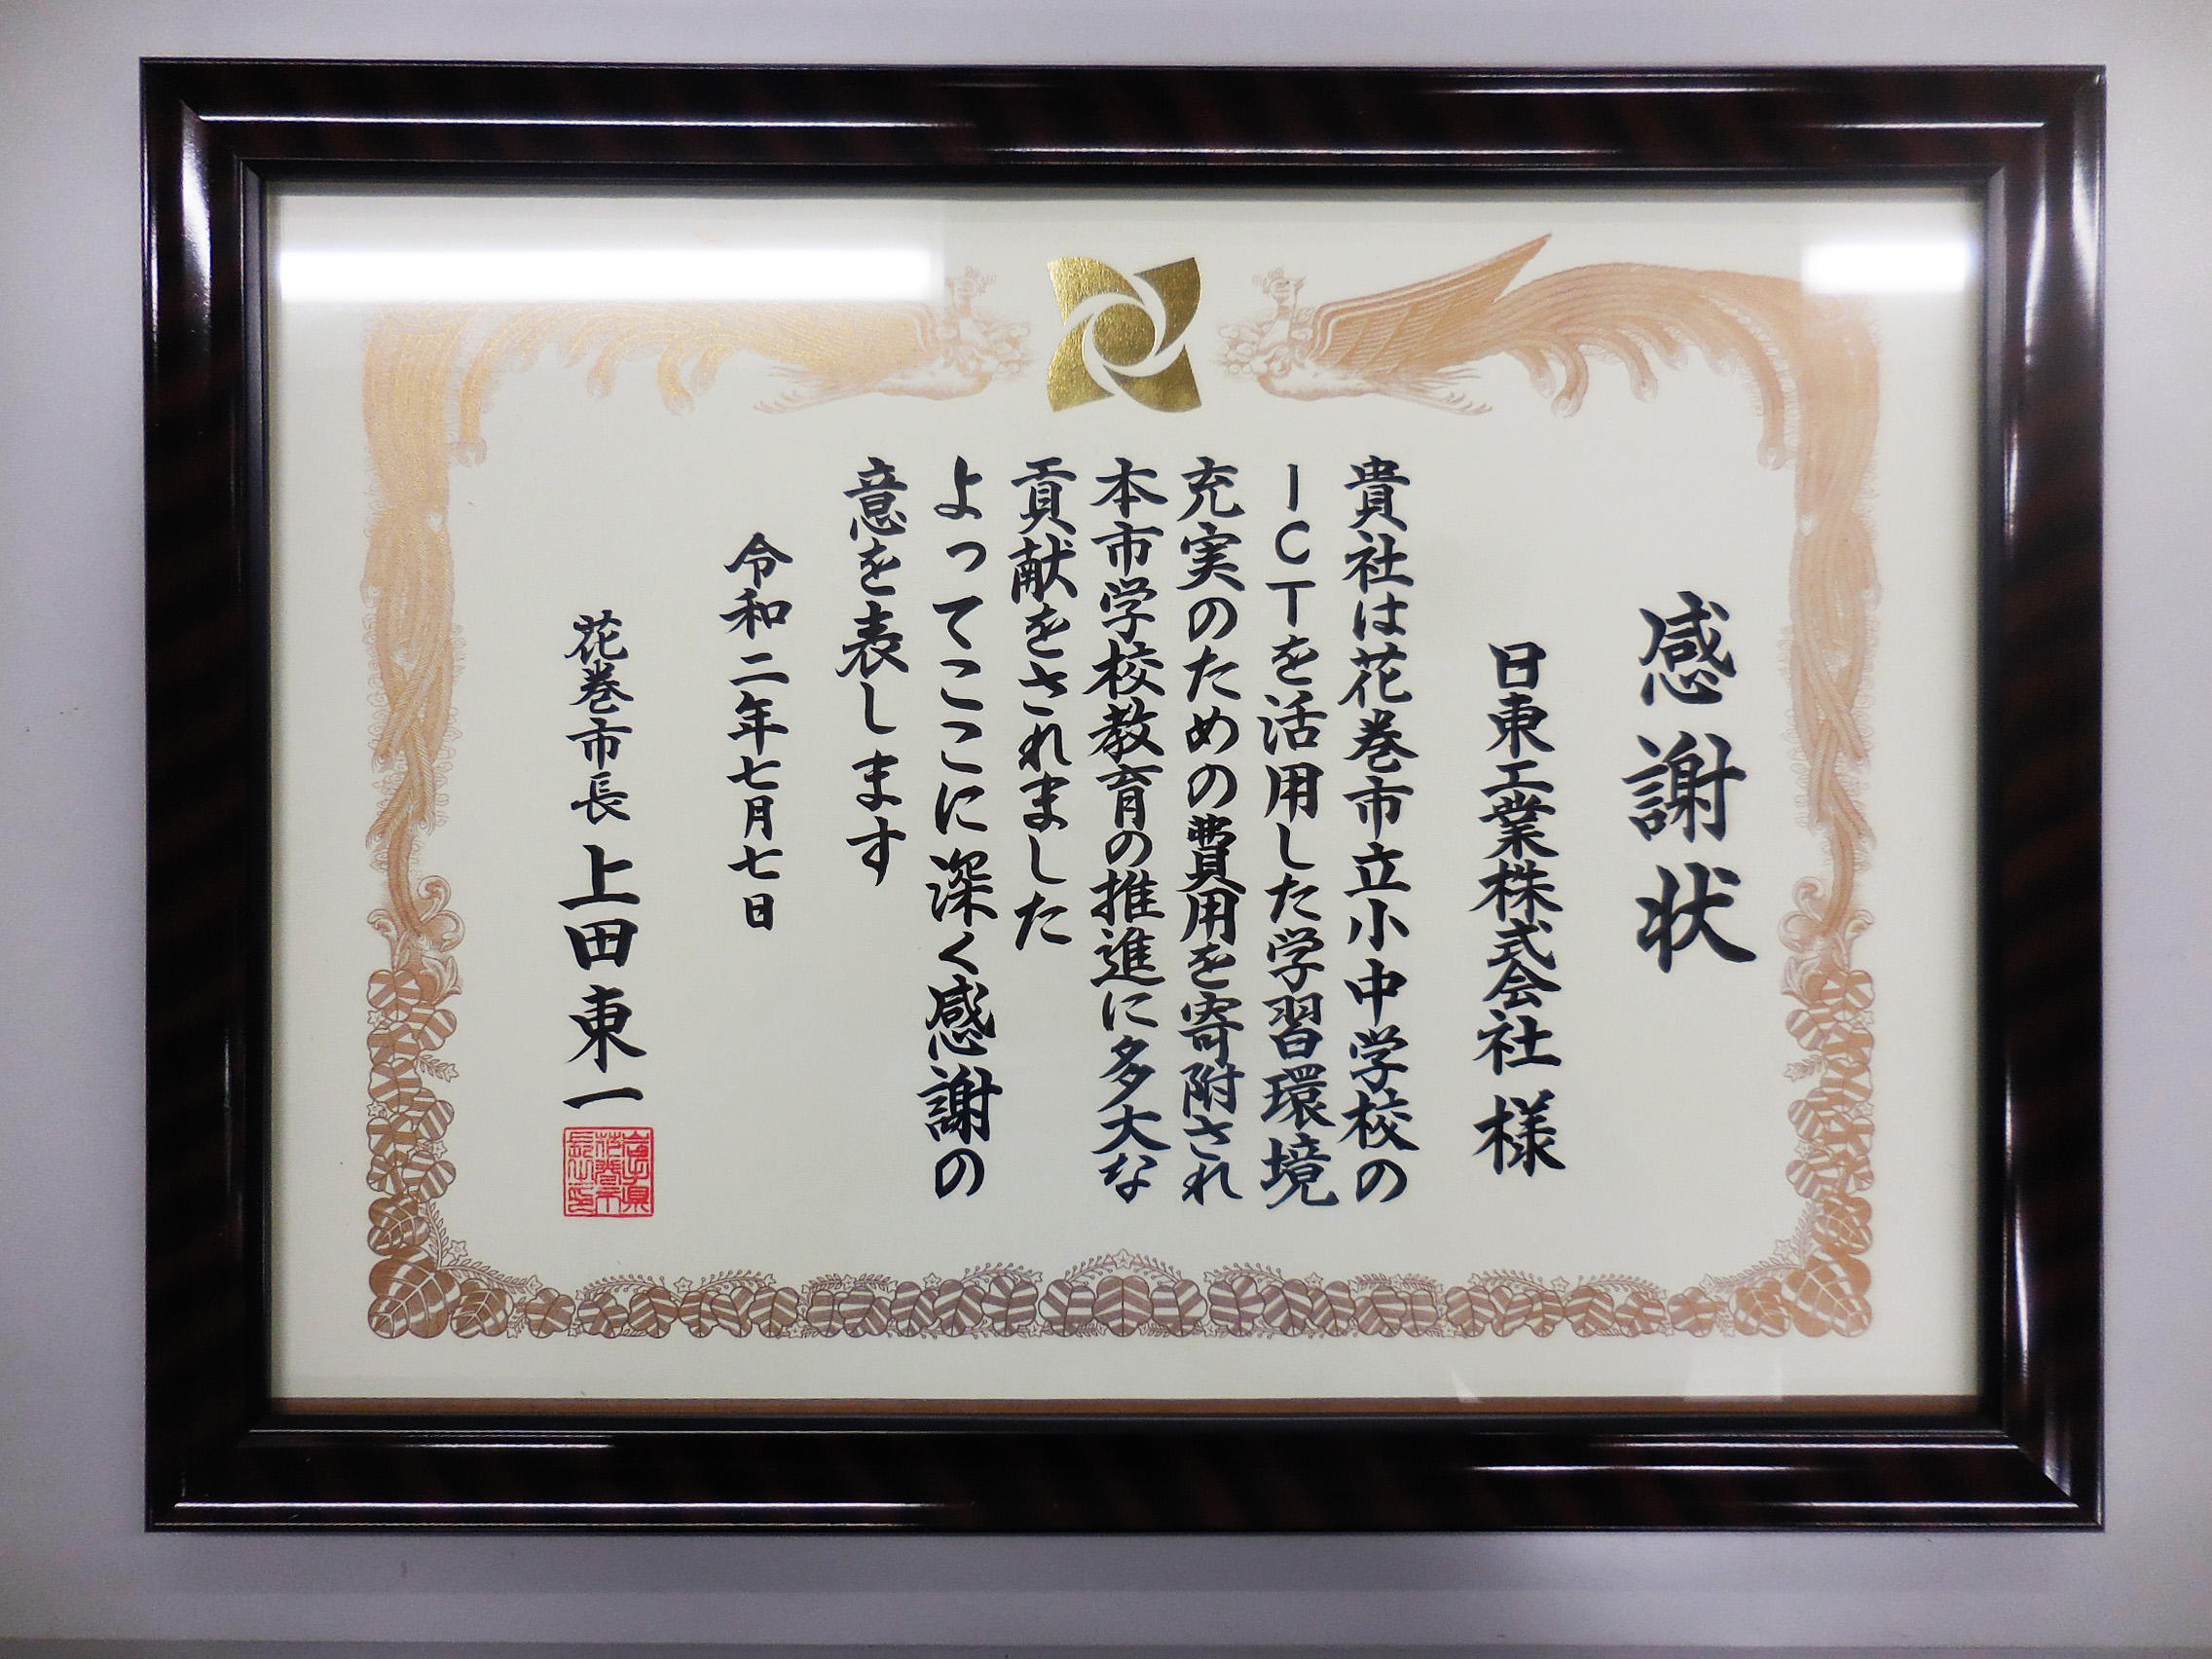 感謝状
日東工業株式会社 様
貴社は花巻市立小中学校の
ICTを活用した学習環境
充実のための費用を寄附され
本市学校教育の推進に多大な
貢献をされました
よってここに深く感謝の
意を表します
令和二年七月七日
花巻市長 上田東一